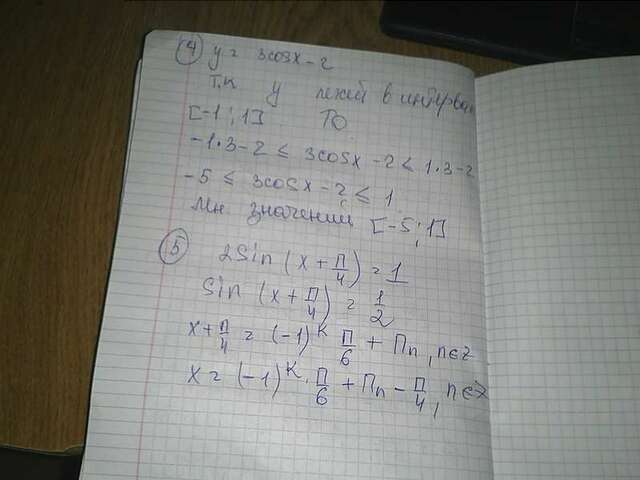 ④ y = 3cosx - 2
Т.к y лежит в интервале
[-1; 1] ТО
-1·3-2 ≤ 3cosx - 2 ≤ 1·3-2
-5 ≤ 3cosx - 2 ≤ 1
Мн. значений [-5; 1]
⑤ 2Sin (x + π/4) = 1
Sin (x + π/4) = 1/2
x + π/4 = (-1)^k π/6 + πn, n∈Z
x = (-1)^k · π/6 + πn - π/4, n∈Z